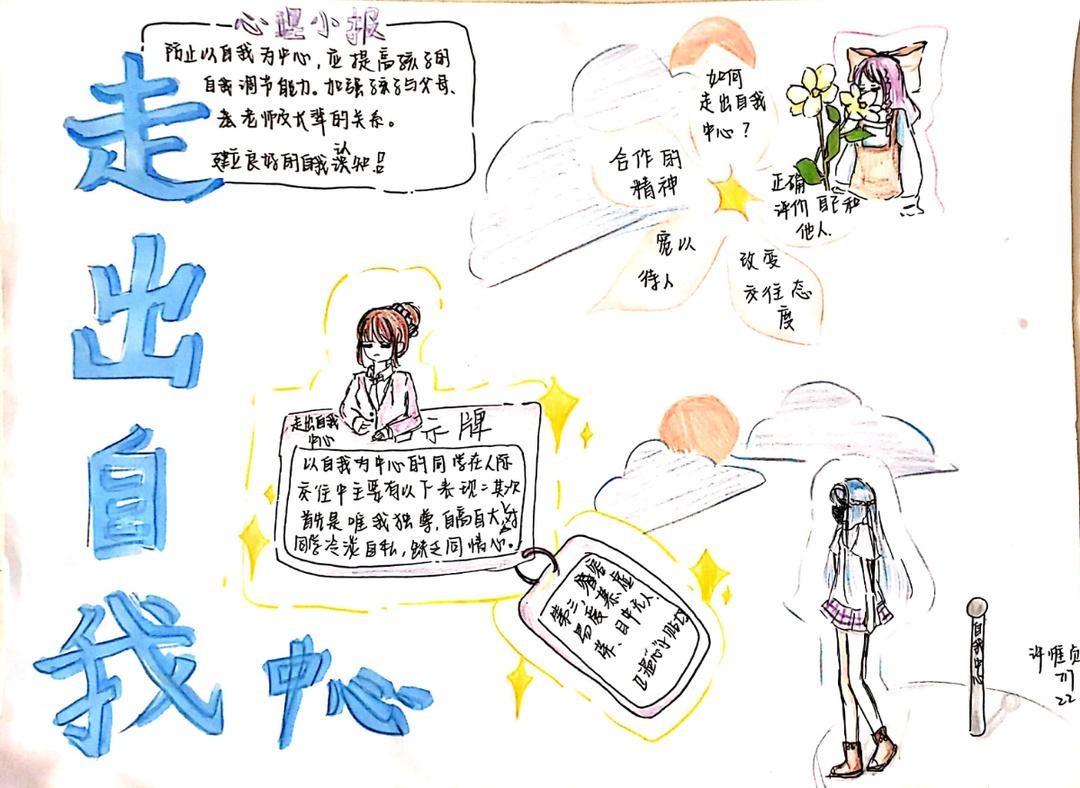 心理小报
防止以自我为中心,应提高孩子的
自我调节能力。加强孩子与父母、
老师及长辈的关系。
建立良好的自我认知!!
走
出
自
我
中心
如何
走出自我
中心?
合作的
精神
正确
评价自己和
他人.
宽以
待人
改变
交往态
度
走出自我
中心
示牌
以自我为中心的同学在人际
交往中主要有以下表现:其次
首先是唯我独尊,自高自大,对
同学冷淡自私,缺乏同情心。
第三,爱慕虚
荣、目中无人
心理小贴士
自我中心
许雅贞
711
22